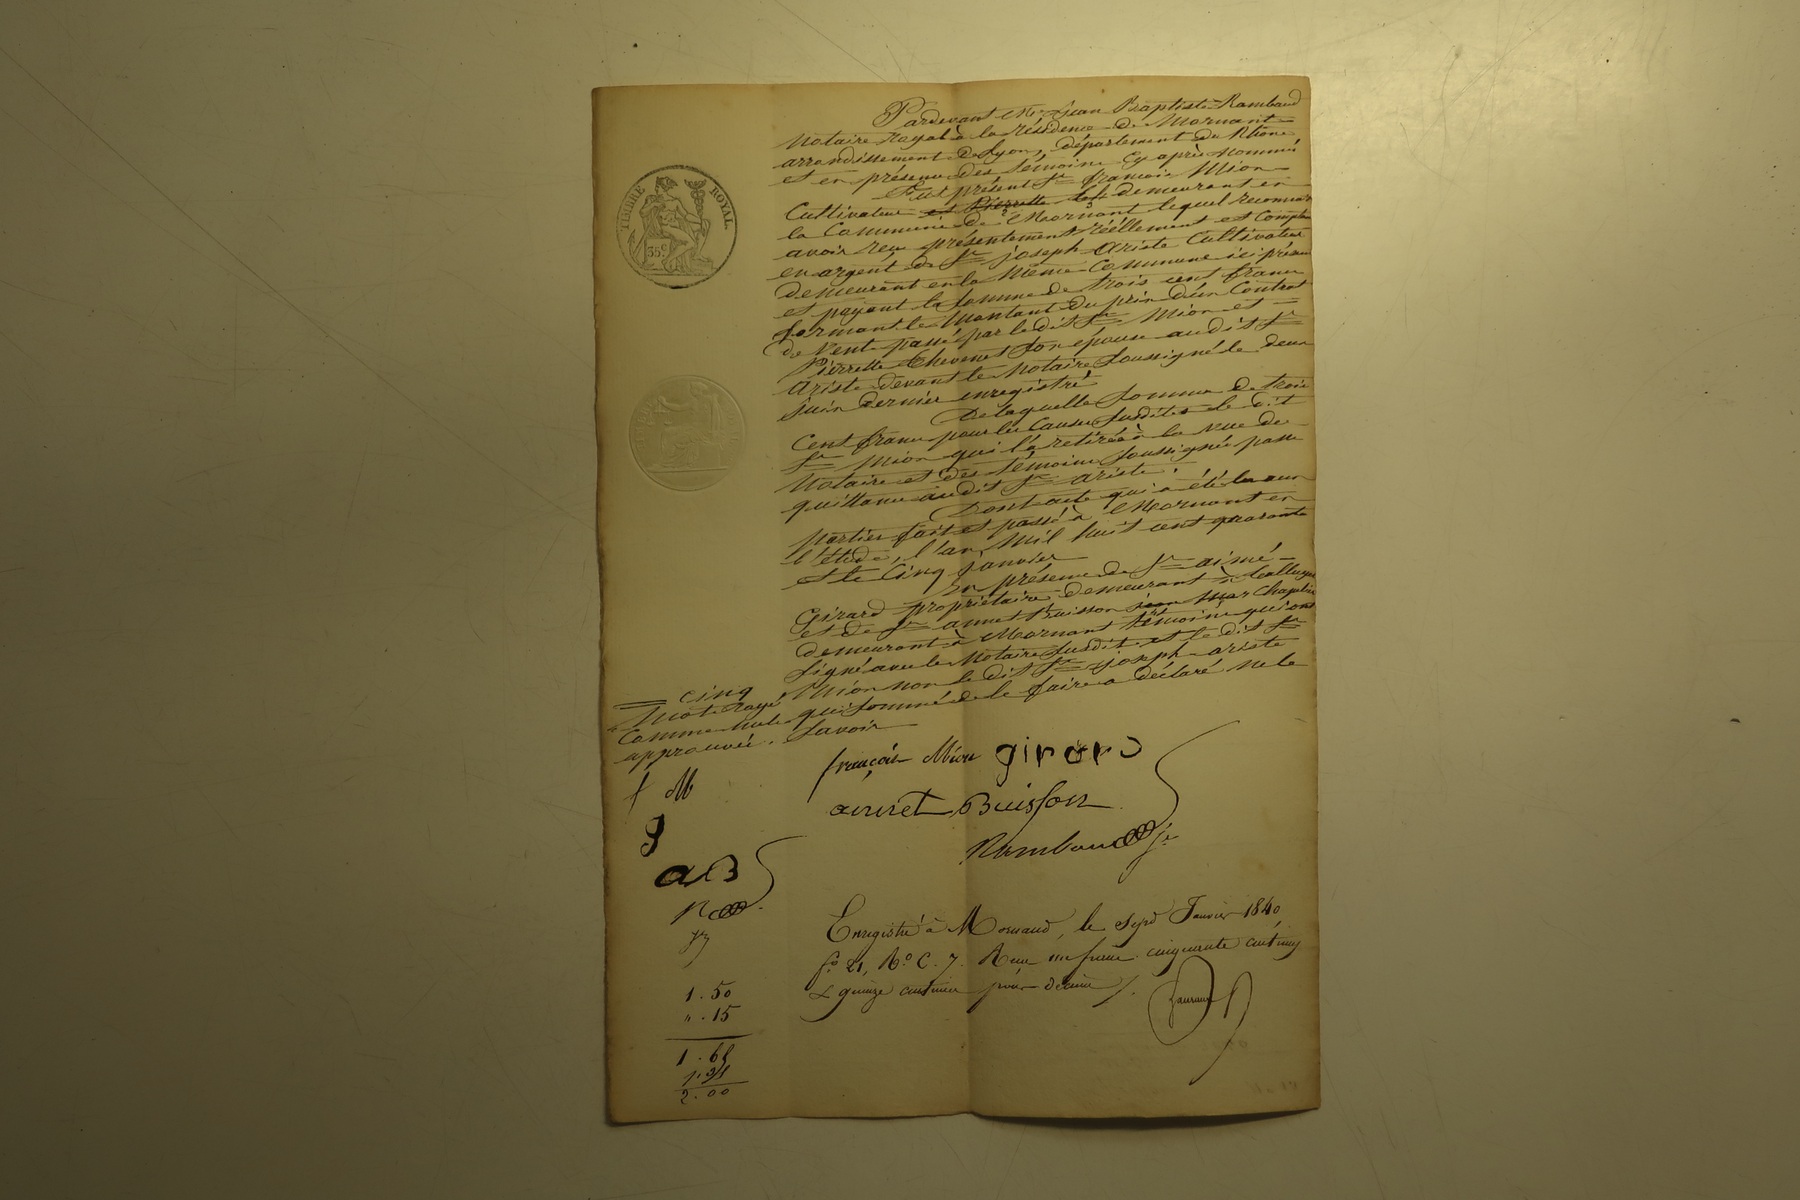 Pardevant Me Jean Baptiste Rambaud
Notaire Royal à la résidence de Mornant
arrondissement de Lyon, département du Rhone
et en présence des témoins cy après nommés
Fut présent Sr françois Mion
Cultivateur et Pierrette demeurant en
la Commune de Mornant lequel reconnait
avoir reçu présentement réellement et Comptant
en argent de Sr joseph Ariste Cultivateur
demeurant en la Même Commune ici présent
et payant la Somme de trois cent francs
formant le Montant du prix d'un Contrat
de Vente passé par le dit Sr Mion et
Pierrette Thevenet Son épouse au dit Sr
Ariste devant le Notaire Soussigné le deux
juin dernier enregistré
De laquelle Somme de trois
Cent francs pour les Causes Susdites le dit
Sr Mion qui l'a retirée à la vue des
Notaire et des témoins Soussignés passe
quittance au dit Sr ariste.
Dont acte qui a été lu aux
parties fait et passé à Mornant en
l'étude, l'an Mil huit cent quarante
et le Cinq janvier
En présence de Sr aimé
Girard propriétaire demeurant à
et de Sr annet Buisson
demeurant à Mornant témoins qui ont
Signé avec le Notaire Susdit et le dit Sr
Mion non le dit Sr joseph ariste
qui Sommé de le faire a déclaré ne le
Savoir
cinq
mots rayé
Comme nuls
approuvée.
TIMBRE ROYAL
35c
f M
g
aB
R
jr
françois Mion girard
annet Buisson
Rambaud jr
Enregistré à Mornand, le Sept Janvier 1840
fo 21, Ro C. 7. Reçu un franc cinquante centimes
& quinze centimes pour décime
1.50
".15
1.65
1.35
2.00